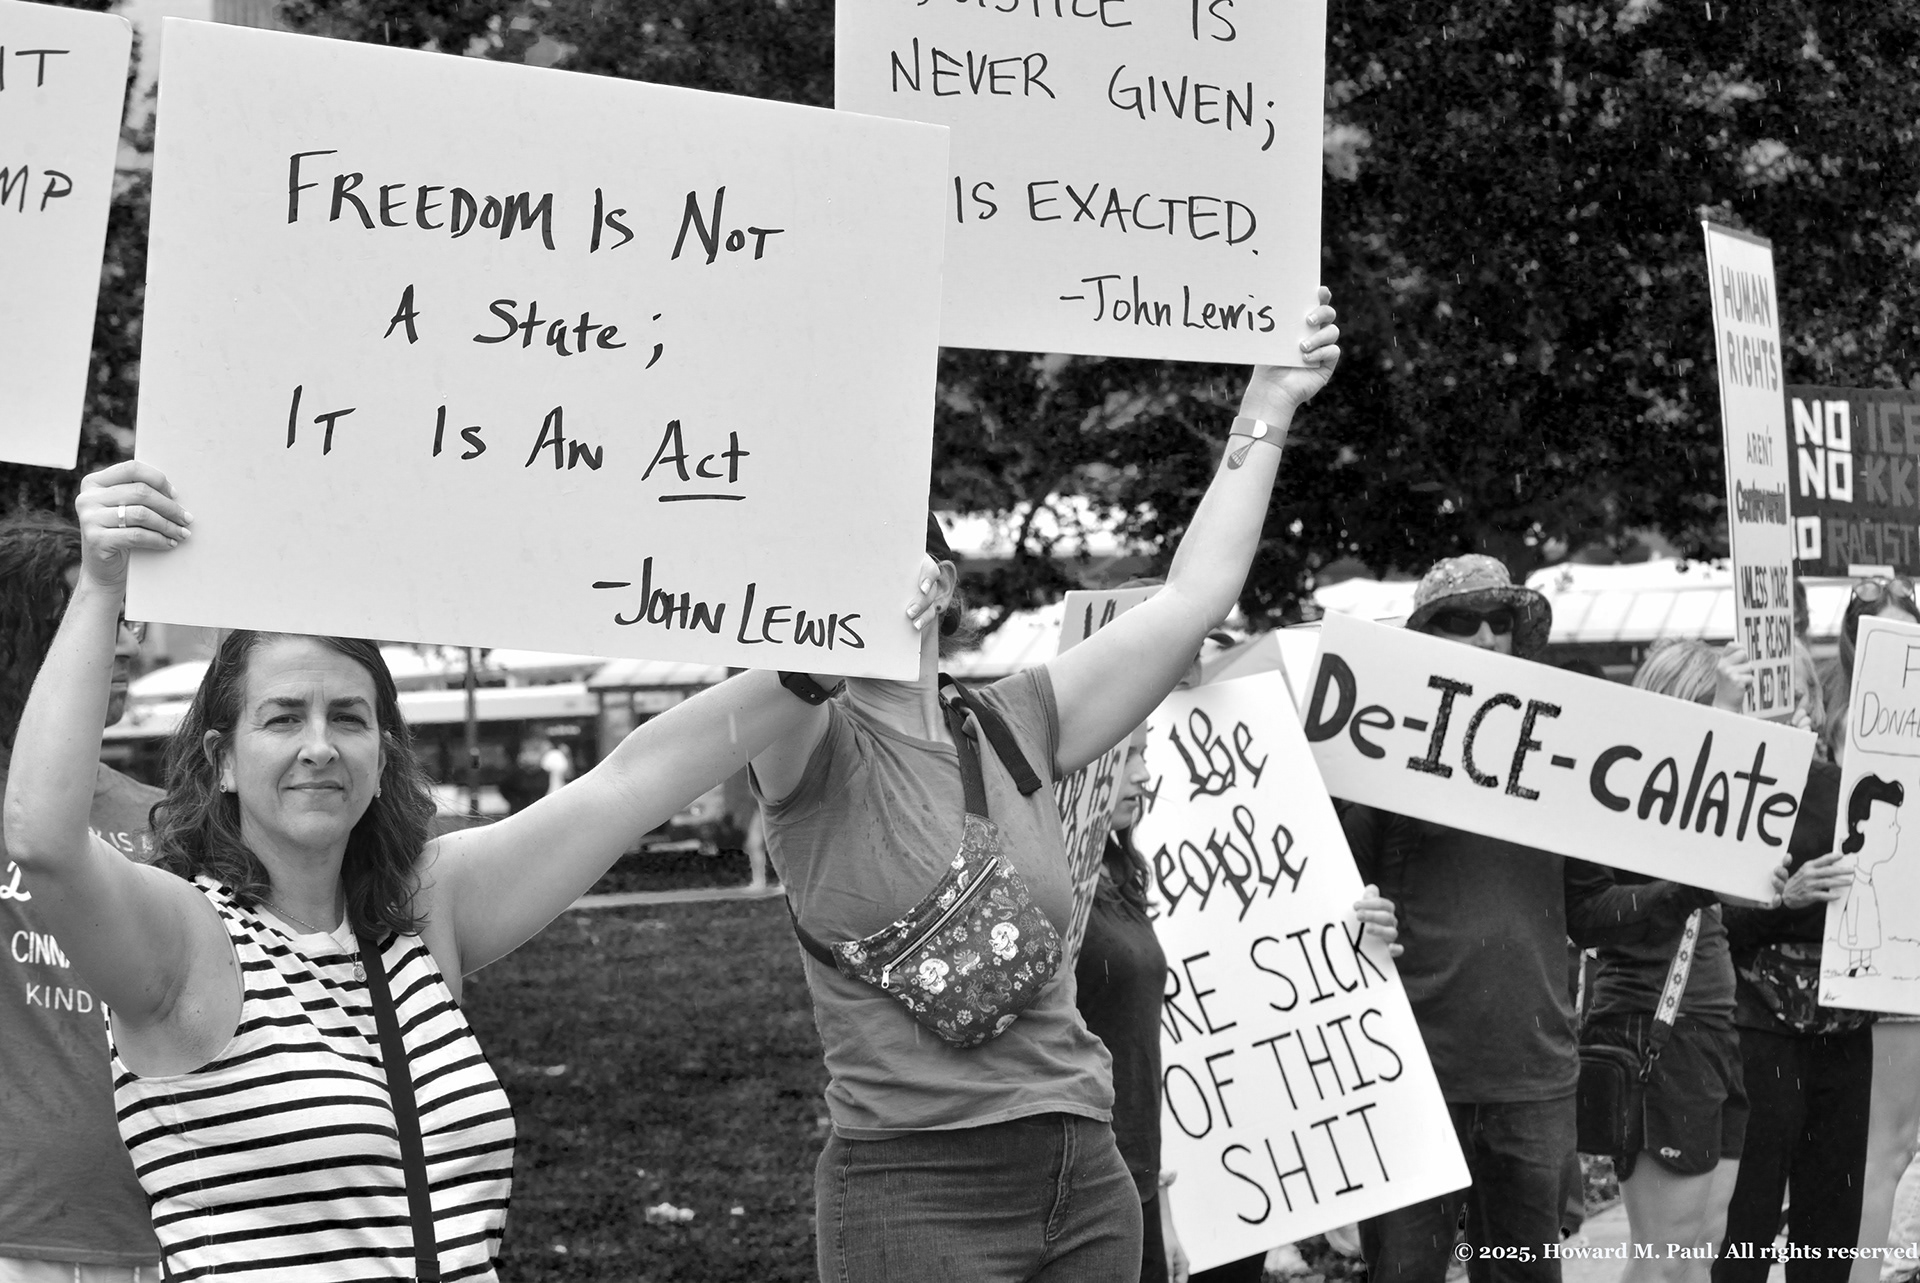 FREEDOM IS NOT
A State;
IT IS AN Act
-JOHN LEWIS
JUSTICE IS
NEVER GIVEN;
IS EXACTED.
-John Lewis
HUMAN
RIGHTS
AREN'T
Controversial
UNLESS YOU'RE
THE REASON
WE NEED THEM
NO ICE
NO KKK
NO RACIST
De-ICE-calate
the
People
ARE SICK
OF THIS
SHIT
KIND
© 2025, Howard M. Paul. All rights reserved